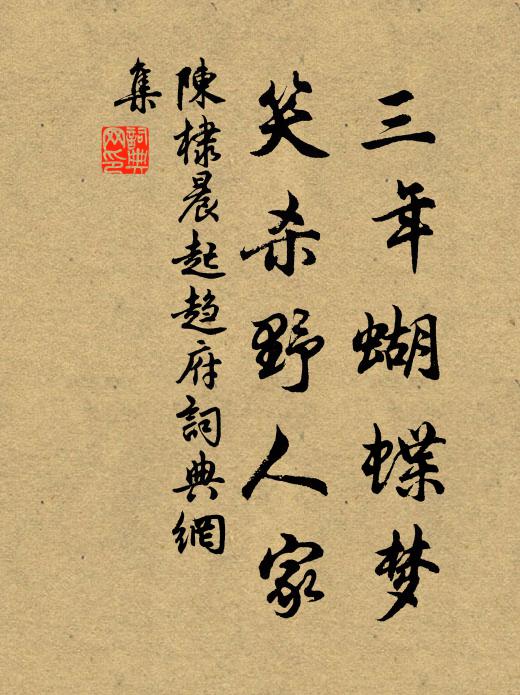 三年蝴蝶梦
笑杀野人家
陳棣晨起趋府詞典網
集
詞典網印